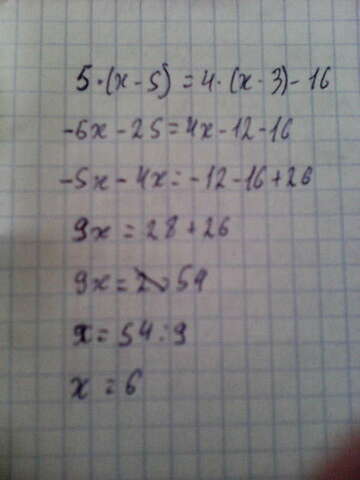 5·(x-5)=4·(x-3)-16
-6x-25=4x-12-16
-5x-4x=-12-16+26
9x=28+26
9x=54
x=54:9
x=6